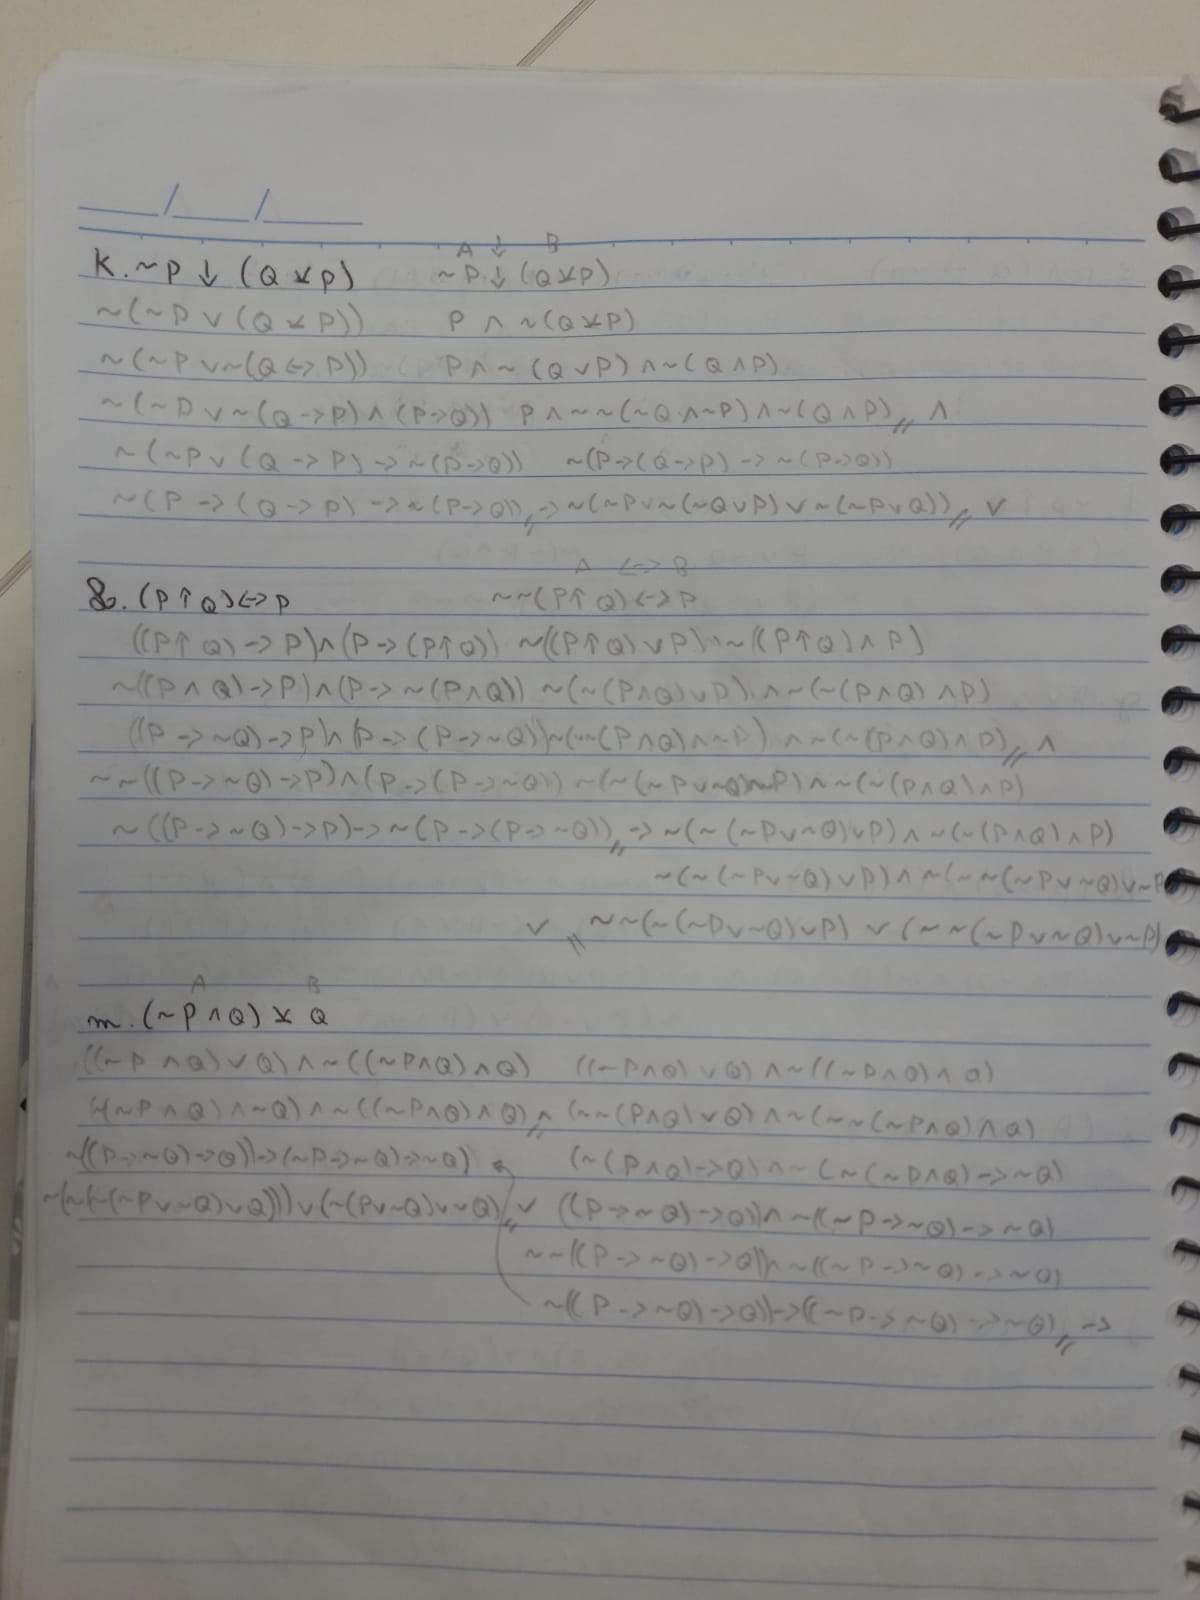 A ↓ B
K. ~P ↓ (Q ⊻ P) ~P ↓ (Q ⊻ P)
~(~P ∨ (Q ⊻ P)) P ∧ ~(Q ⊻ P)
~(~P ∨ ~(Q <-> P)) P ∧ ~ (Q ∨ P) ∧ ~(Q ∧ P)
~(~P ∨ ~(Q -> P) ∧ (P -> Q)) P ∧ ~ ~(~Q ∧ ~P) ∧ ~(Q ∧ P)// ∧
~(~P ∨ (Q -> P) -> ~(P -> Q)) ~(P -> (Q -> P) -> ~(P -> Q))
~(P -> (Q -> P) -> ~(P -> Q))// -> ~(~P ∨ ~(~Q ∨ P) ∨ ~(~P ∨ Q))// ∨
A <-> B
l. (P ↑ Q) <-> P ~~(P ↑ Q) <-> P
((P ↑ Q) -> P) ∧ (P -> (P ↑ Q)) ~((P ↑ Q) ∨ P) ∧ ~((P ↑ Q) ∧ P)
~((P ∧ Q) -> P) ∧ (P -> ~(P ∧ Q)) ~(~(P ∧ Q) ∨ P) ∧ ~(~(P ∧ Q) ∧ P)
((P -> ~Q) -> P) ∧ (P -> (P -> ~Q)) ~(~~(P ∧ Q) ∧ ~P) ∧ ~(~(P ∧ Q) ∧ P)// ∧
~~((P -> ~Q) -> P) ∧ (P -> (P -> ~Q)) ~(~(~P ∨ ~Q) ∨ P) ∧ ~(~(P ∧ Q) ∧ P)
~((P -> ~Q) -> P) -> ~(P -> (P -> ~Q))// -> ~(~(~P ∨ ~Q) ∨ P) ∧ ~(~(P ∧ Q) ∧ P)
~(~(~P ∨ ~Q) ∨ P) ∧ ~(~~(~P ∨ ~Q) ∨ ~P
∨ // ~~(~(~P ∨ ~Q) ∨ P) ∨ (~~(~P ∨ ~Q) ∨ ~P)
A B
m. (~P ∧ Q) ⊻ Q
((~P ∧ Q) ∨ Q) ∧ ~((~P ∧ Q) ∧ Q) ((~P ∧ Q) ∨ Q) ∧ ~((~P ∧ Q) ∧ Q)
~(~P ∧ Q) ∧ ~Q) ∧ ~((~P ∧ Q) ∧ Q)// ∧ (~~(P ∧ Q) ∨ Q) ∧ ~(~~(~P ∧ Q) ∧ Q)
~((P -> ~Q) -> Q)) -> (~P -> ~Q) -> ~Q) (~(P ∧ Q) -> Q) ∧ ~(~(~P ∧ Q) -> ~Q)
~(~(~(~P ∨ ~Q) ∨ Q))) ∨ (~(P ∨ ~Q) ∨ ~Q)// ∨ ((P -> ~Q) -> Q)) ∧ ~((~P -> ~Q) -> ~Q)
~~((P -> ~Q) -> Q)) ∧ ~((~P -> ~Q) -> ~Q)
~((P -> ~Q) -> Q)) -> ((~P -> ~Q) -> ~Q)// ->